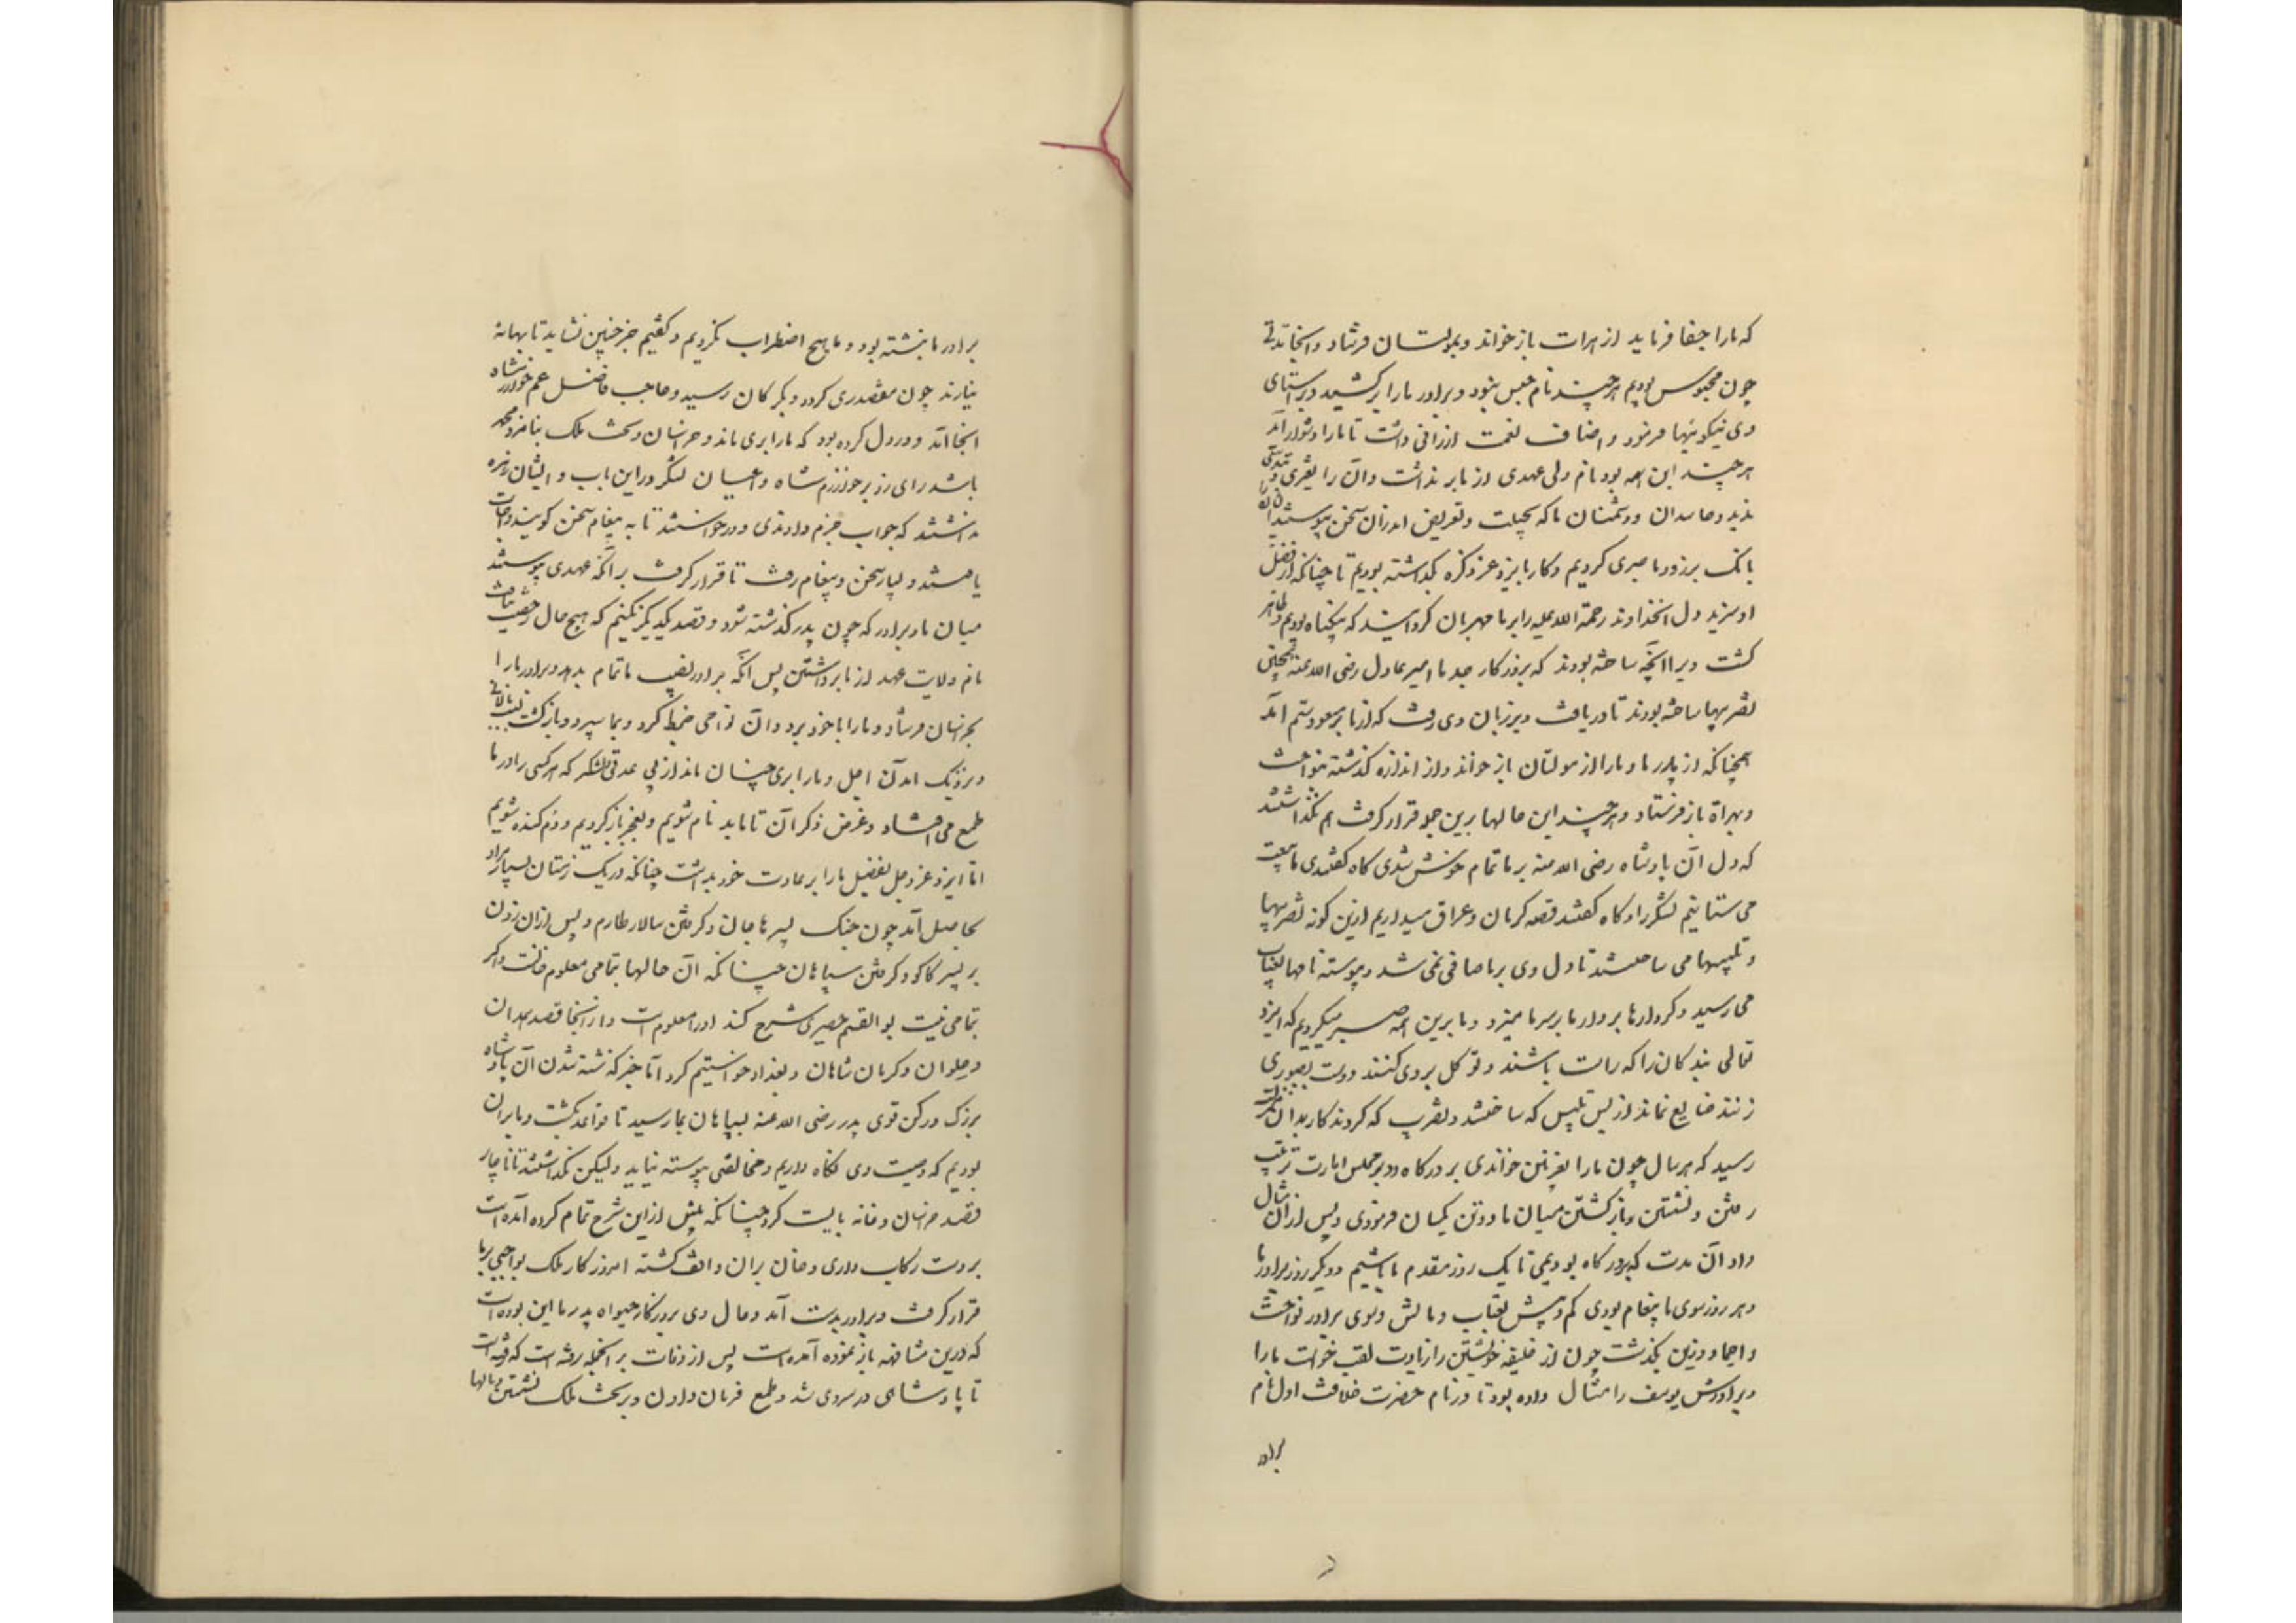 که ما را جفا فرماید از هرات باز خواند و بمولتان فرستاد و آنجا مدتی
چون محبوس بودیم هر چند نام حبس نبود و برادر ما را برکشید و براستای
وی نیکوئیها فرمود و اصناف نعمت ارزانی داشت تا ما را دشوار آید
هر چند این همه بود نام ولی عهدی از ما بر نداشت و آن را تغیری و تبدیلی
ندید و حاسدان و دشمنان ما که بحیلت و تعریض اندران سخن پیوستند
بانک برزد و ما صبری کردیم و کار بایزد عز ذکره بگذاشته بودیم تا چنانکه از فضل
او سزید دل انخداوند رحمة الله علیه را بر ما مهربان گردانید که بیگناه بودیم و ظاهر
گشت ویرا آنچه ساخته بودند که بروزگار جد ما امیر عادل رضی الله عنه همچنین
تضریبها ساخته بودند تا دریافت و بر زبان وی رفت که از ما بر مسعود ستم آمد
همچنانکه از پدر ما و ما را از مولتان باز خواند و از اندازه گذشته بنواخت
و بهراة باز فرستاد و هر چند این حالها برین جمله قرار گرفت هم نگذاشتند
که دل آن پادشاه رضی الله عنه بر ما تمام خوش شدی گاه گفتندی ما بیعت
می ستانیم لشکر را و گاه گفتند قصد کرمان و عراق میداریم ازین گونه تضریبها
و تلبیسها می ساختند تا دل وی بر ما صافی نمی شد و پیوسته نامها بعتاب
می رسید و کردارها برادر ما بر سر ما میزد و ما برین همه صبر میکردیم که ایزد
تعالی بندگان را که راست باشند و توکل بر وی کنند و دست بصبوری
زنند ضایع نماند از بس تلبیس که ساختند و تضریب که کردند کار بدان
رسید که هر سال چون ما را بغزنین خواندی بر درگاه و در مجلس امارت ترتیب
رفتن و نشستن و بازگشتن میان ما دو تن یکسان فرمودی و پس ازان مثال
داد آن مدت که بدرگاه بودیمی تا یک روز مقدم ما باشیم و دیگر روز برادر ما
و هر روز سوی ما پیغام بودی کم و بیش بعتاب و مالش و سوی برادر نواخت
و احماد و زین بگذشت چون از خلیفه خویشتن را زیادت لقب خواست ما را
و برادرش یوسف را مثال داده بود تا در نام حضرت خلافت اول نام
برادر
برادر ما نبشته بود و ما هیچ اضطراب نکردیم و گفتیم جز چنین نشاید تا بهانه
نیارند چون مقصدری کرد و بگرگان رسید و حاجب فاضل عم خوارزمشاه
آنجا آمد و در دل کرده بود که ما را بری ماند و خراسان و تخت ملک بنامزد محمد
باشد رای زد بر خوارزمشاه و اعیان لشکر در این باب و ایشان زهره
نداشتند که جواب جزم دادندی و درخواستند تا به پیغام سخن گویند و اجابت
یافتند و بسیار سخن و پیغام رفت تا قرار گرفت بر آنکه عهدی پیوستند
میان ما و برادر که چون پدر گذشته شود و قصد یکدیگر نکنیم که بهیچ حال رخصت نیافت
نام ولایت عهد از ما برداشتن پس آنکه برادر نصیب ما تمام بدهد و برادر ما را
بخراسان فرستاد و ما را با خود برد و آن نواحی ضبط کرد و بما سپرد و بازگشت
و بزدیک آمدن اجل و ما را بری چنان ماند از بی عدتی و لشکر که هر کسی را در ما
طمع می افتاد و غرض ذکر آن تا ما بد نام شویم و بعجز بازگردیم و دم کنده شویم
اما ایزد عز و جل بفضل ما را بر عادت خود بداشت چنانکه در یک زمستان بسیار مراد
بحاصل آمد چون جنگ پسرهاجان و گرفتن سالار طارم و پس ازان زدن
بر پسر کاکو و گرفتن سپاهان چنانکه آن حالها بتمامی معلوم خانست و اگر
بتمامی نیست بو القسم حصیری شرح کند او را معلوم است و از آنجا قصد همدان
و حلوان و کرمان شاهان و بغداد خواستیم کرد اما خبر گذشته شدن آن پادشاه
بزرک و رکن قوی پدر رضی الله عنه بسپاهان بما رسید تا قواعد بگشت و ما بران
بودیم که وصیت وی نگاه داریم و مخالفتی پیوسته نیاید و لیکن نگذاشتند تا ناچار
قصد خراسان و خانه بایست کرد چنانکه پیش ازین شرح تمام کرده آمده است
بر دست رکاب داری و خان بران واقف گشته امروز کار ملک بواجبی بر ما
قرار گرفت و برادر بدست آمد و حال وی بروزگار حیوة پدر ما این بوده است
که درین مشافهه باز نموده آمده است پس از وفات بر آنجمله رفته است که رفته است
تا پادشاهی در سر وی شد و طمع فرمان دادن و بر تخت ملک نشستن و مالها